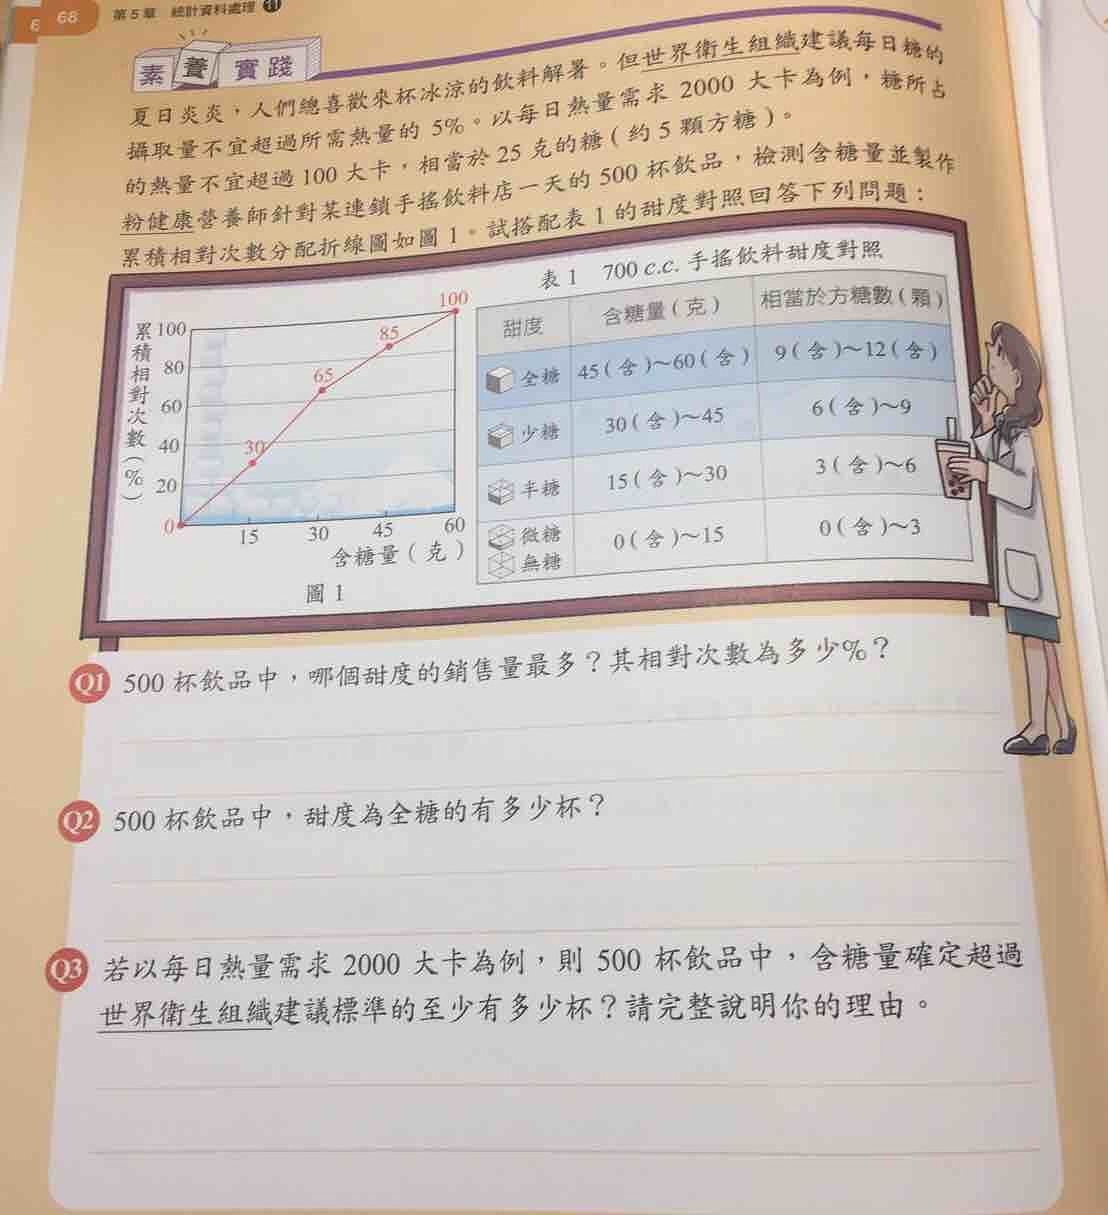 6 68 第5章 統計資料處理 11
素養 實踐
夏日炎炎，人們總喜歡來杯冰涼的飲料解暑。但世界衛生組織建議每日糖的
攝取量不宜超過所需熱量的 5%。以每日熱量需求 2000 大卡為例，糖所占
的熱量不宜超過 100 大卡，相當於 25 克的糖（約 5 顆方糖）。
粉健康營養師針對某連鎖手搖飲料店一天的 500 杯飲品，檢測含糖量並製作
累積相對次數分配折線圖如圖 1。試搭配表 1 的甜度對照回答下列問題：
累積相對次數（%）
100
80
60
40
20
0
30
65
85
100
15 30 45 60
含糖量（克）
圖 1
表 1 700 c.c. 手搖飲料甜度對照
甜度 含糖量（克） 相當於方糖數（顆）
全糖 45（含）～60（含） 9（含）～12（含）
少糖 30（含）～45 6（含）～9
半糖 15（含）～30 3（含）～6
微糖 0（含）～15 0（含）～3
無糖
Q1 500 杯飲品中，哪個甜度的銷售量最多？其相對次數為多少%？
Q2 500 杯飲品中，甜度為全糖的有多少杯？
Q3 若以每日熱量需求 2000 大卡為例，則 500 杯飲品中，含糖量確定超過
世界衛生組織建議標準的至少有多少杯？請完整說明你的理由。